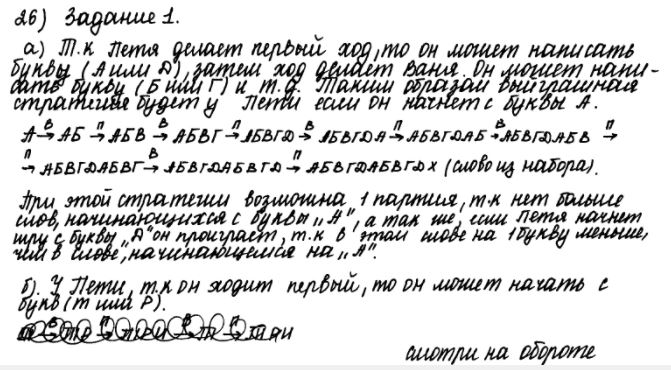 26) Задание 1.
а) Т.к Петя делает первый ход, то он может написать
букву (А или Д), затем ход делает Ваня. Он может напи-
сать букву (Б или Г) и т.д. Таким образам выйграшная
стратегия будет у Пети если он начнет с буквы А.
А →В АБ →П АБВ →В АБВГ →П АБВГД →В АБВГДА →П АБВГДАБ →В АБВГДАБВ →П
→П АБВГДАБВГ →В АБВГДАБВГД →П АБВГДАБВГДХ (слово из набора).
При этой стратегии возможна 1 партия, т.к нет больше
слов, начинающихся с буквы „А", а так же, если Петя начнет
игру с буквы „Д" он проиграет, т.к в этом слове на 1 букву меньше,
чем в слове, начинающемся на „А".
б). У Пети, т.к он ходит первый, то он может начать с
букв (Т или Р).
смотри на обороте